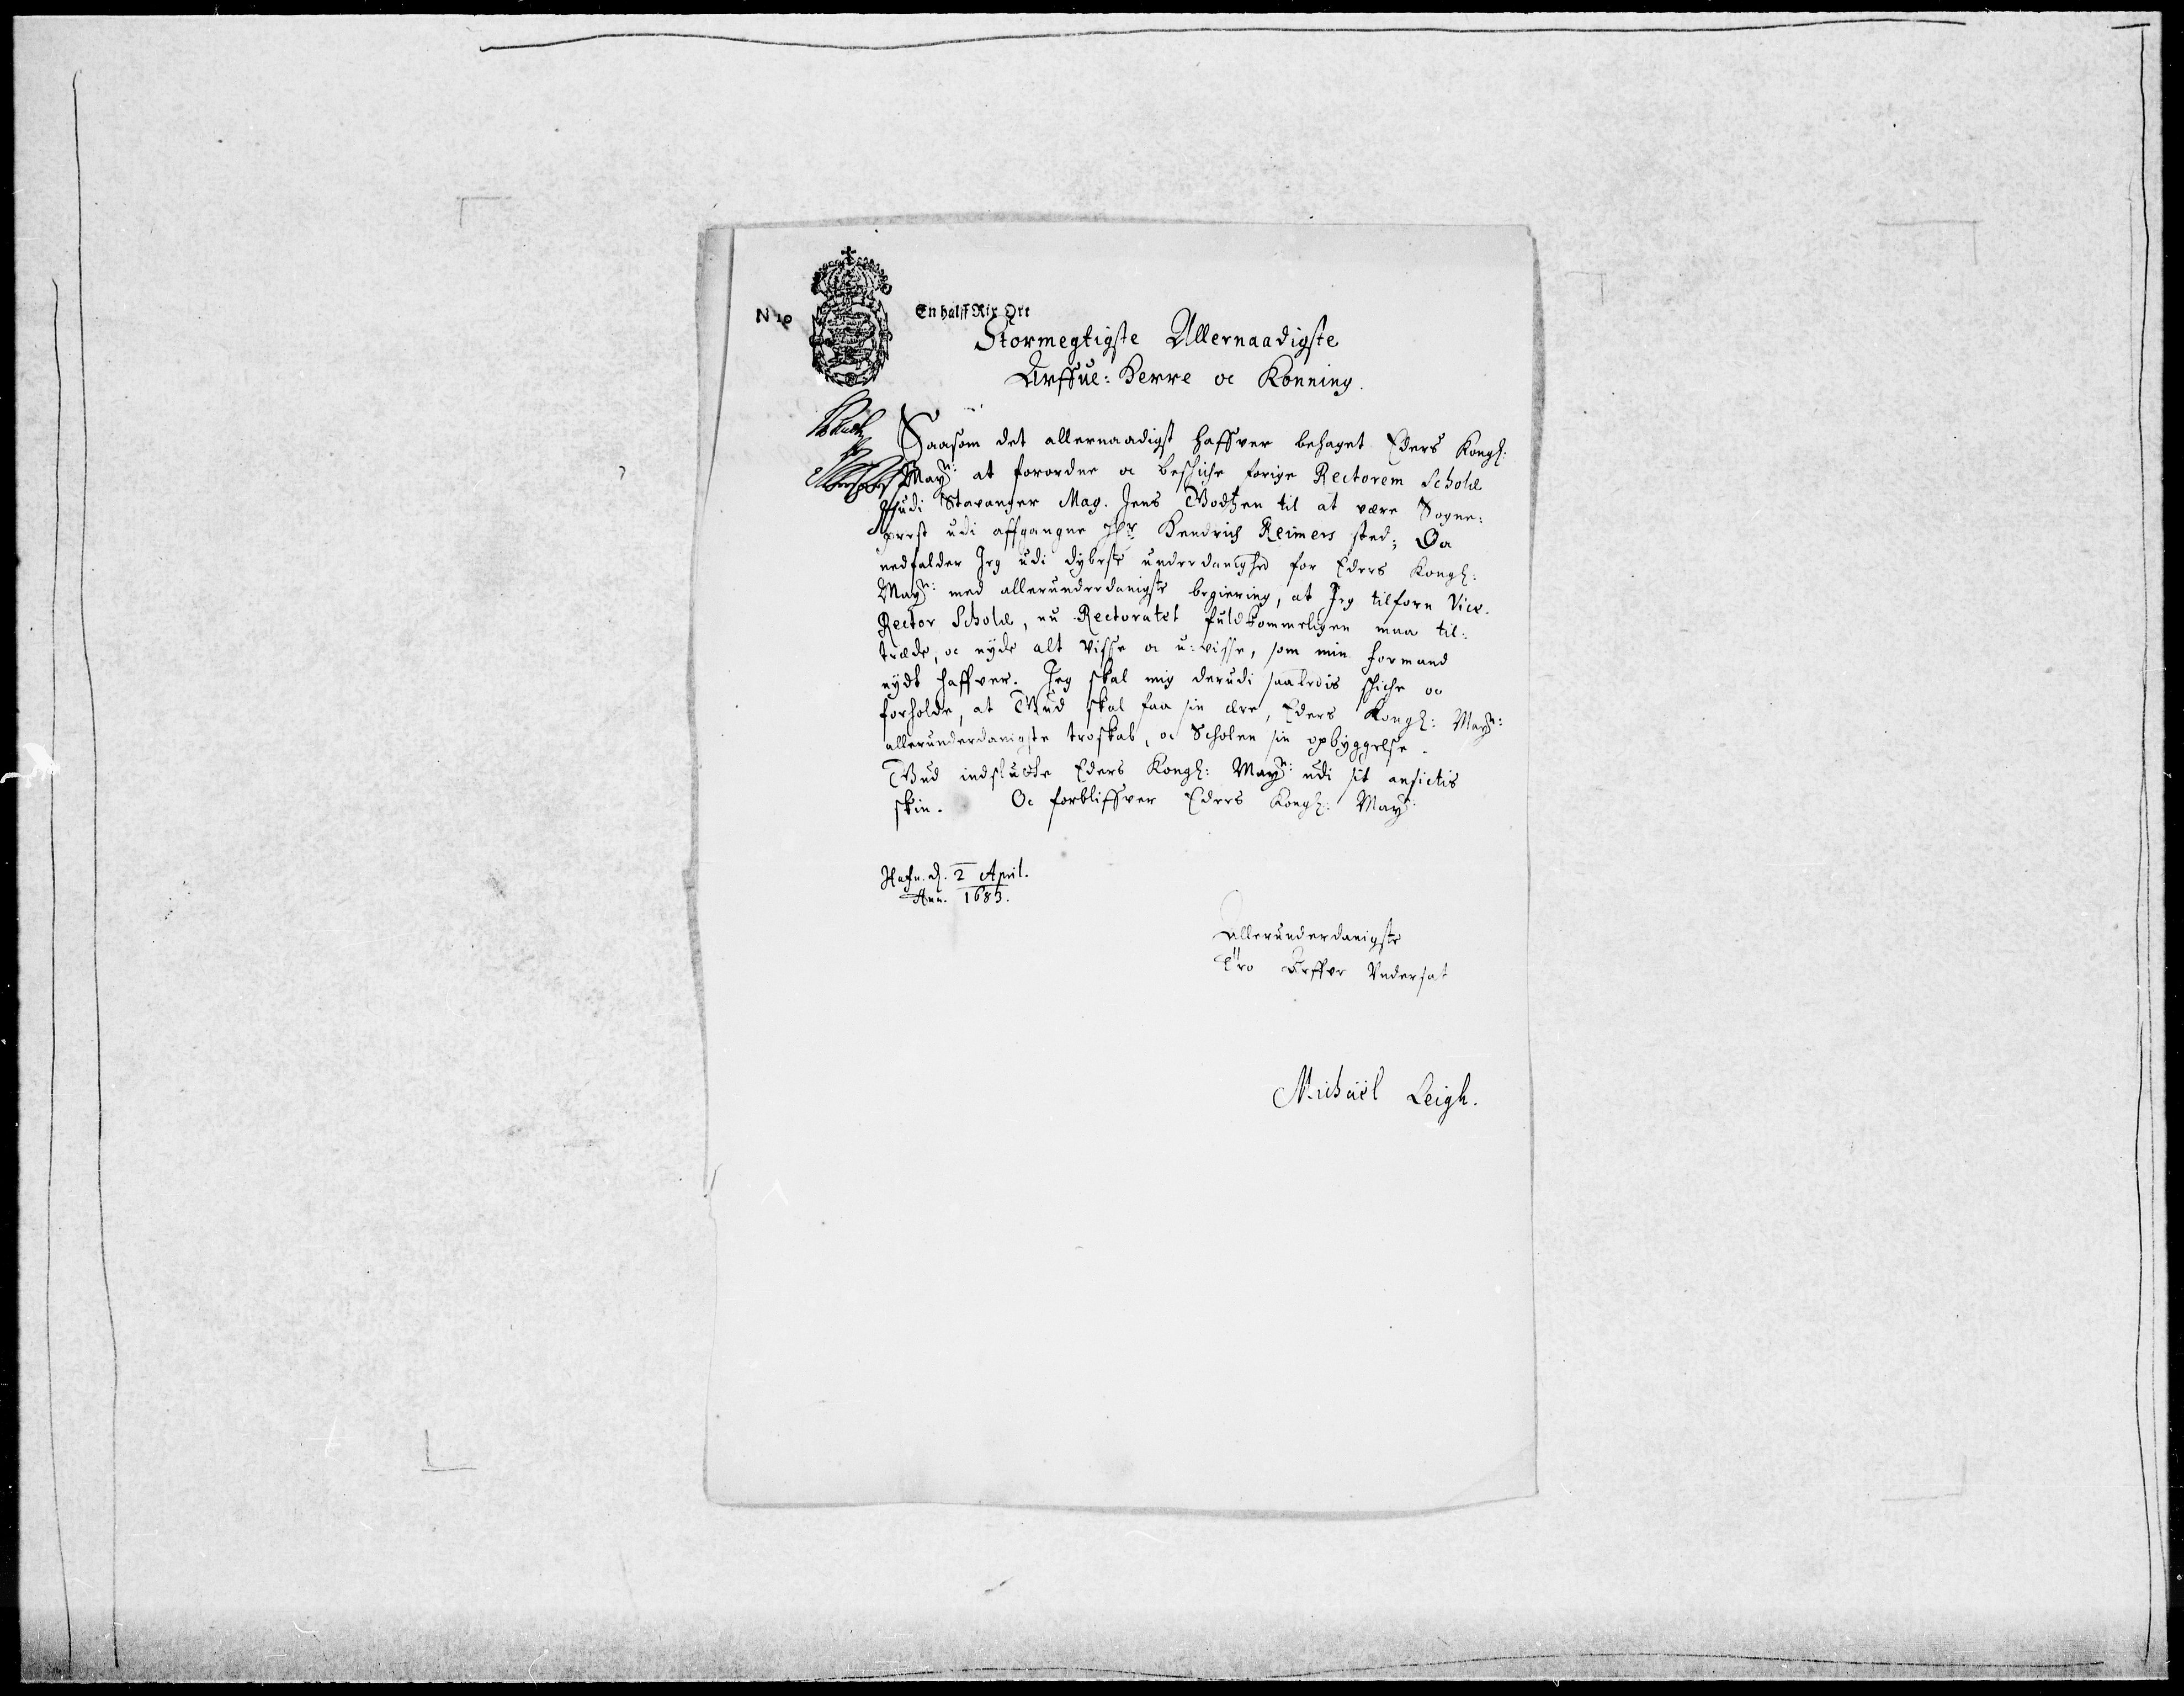 En halff Rix Ort
Stormegtigste Allernaadigste
Arffue: Herre oc Konning.
Saasom det allernaadigst haffver behaget Eders Kongl:
Mayt: at forordne oc beskiche forige Rectorem Scholæ
udi Stavanger Mag. Jens Godtzen til at være Sogne:
prest udi affgangne Hr Hendrich Reimers sted; Da
nedfalder Jeg udi dybeste underdanighed for Eders Kongl:
Mayt: med allerunderdanigste begiering, at Jeg tilforn Vice.
Rector Scholæ, nu Rectoratet fuldkommeligen maa til:
træde, oc nyde alt visse oc u:visse, som min formand
nydt haffver. Jeg skal mig derudi saaledis skiche oc
forholde, at Gud skal faa sin ære, Eders Kongl: Mayt:
allerunderdanigste troskab, oc Scholen sin opbyggelse.
Gud indslutte Eders Kongl: Mayt: udi sit ansictis
skin. Oc forbliffver Eders Kongl: Mayt:
Hafn. d. 2 April.
Ann. 1683.
Allerunderdanigste
Tro Arffve Undersat
Michaël Leigh.